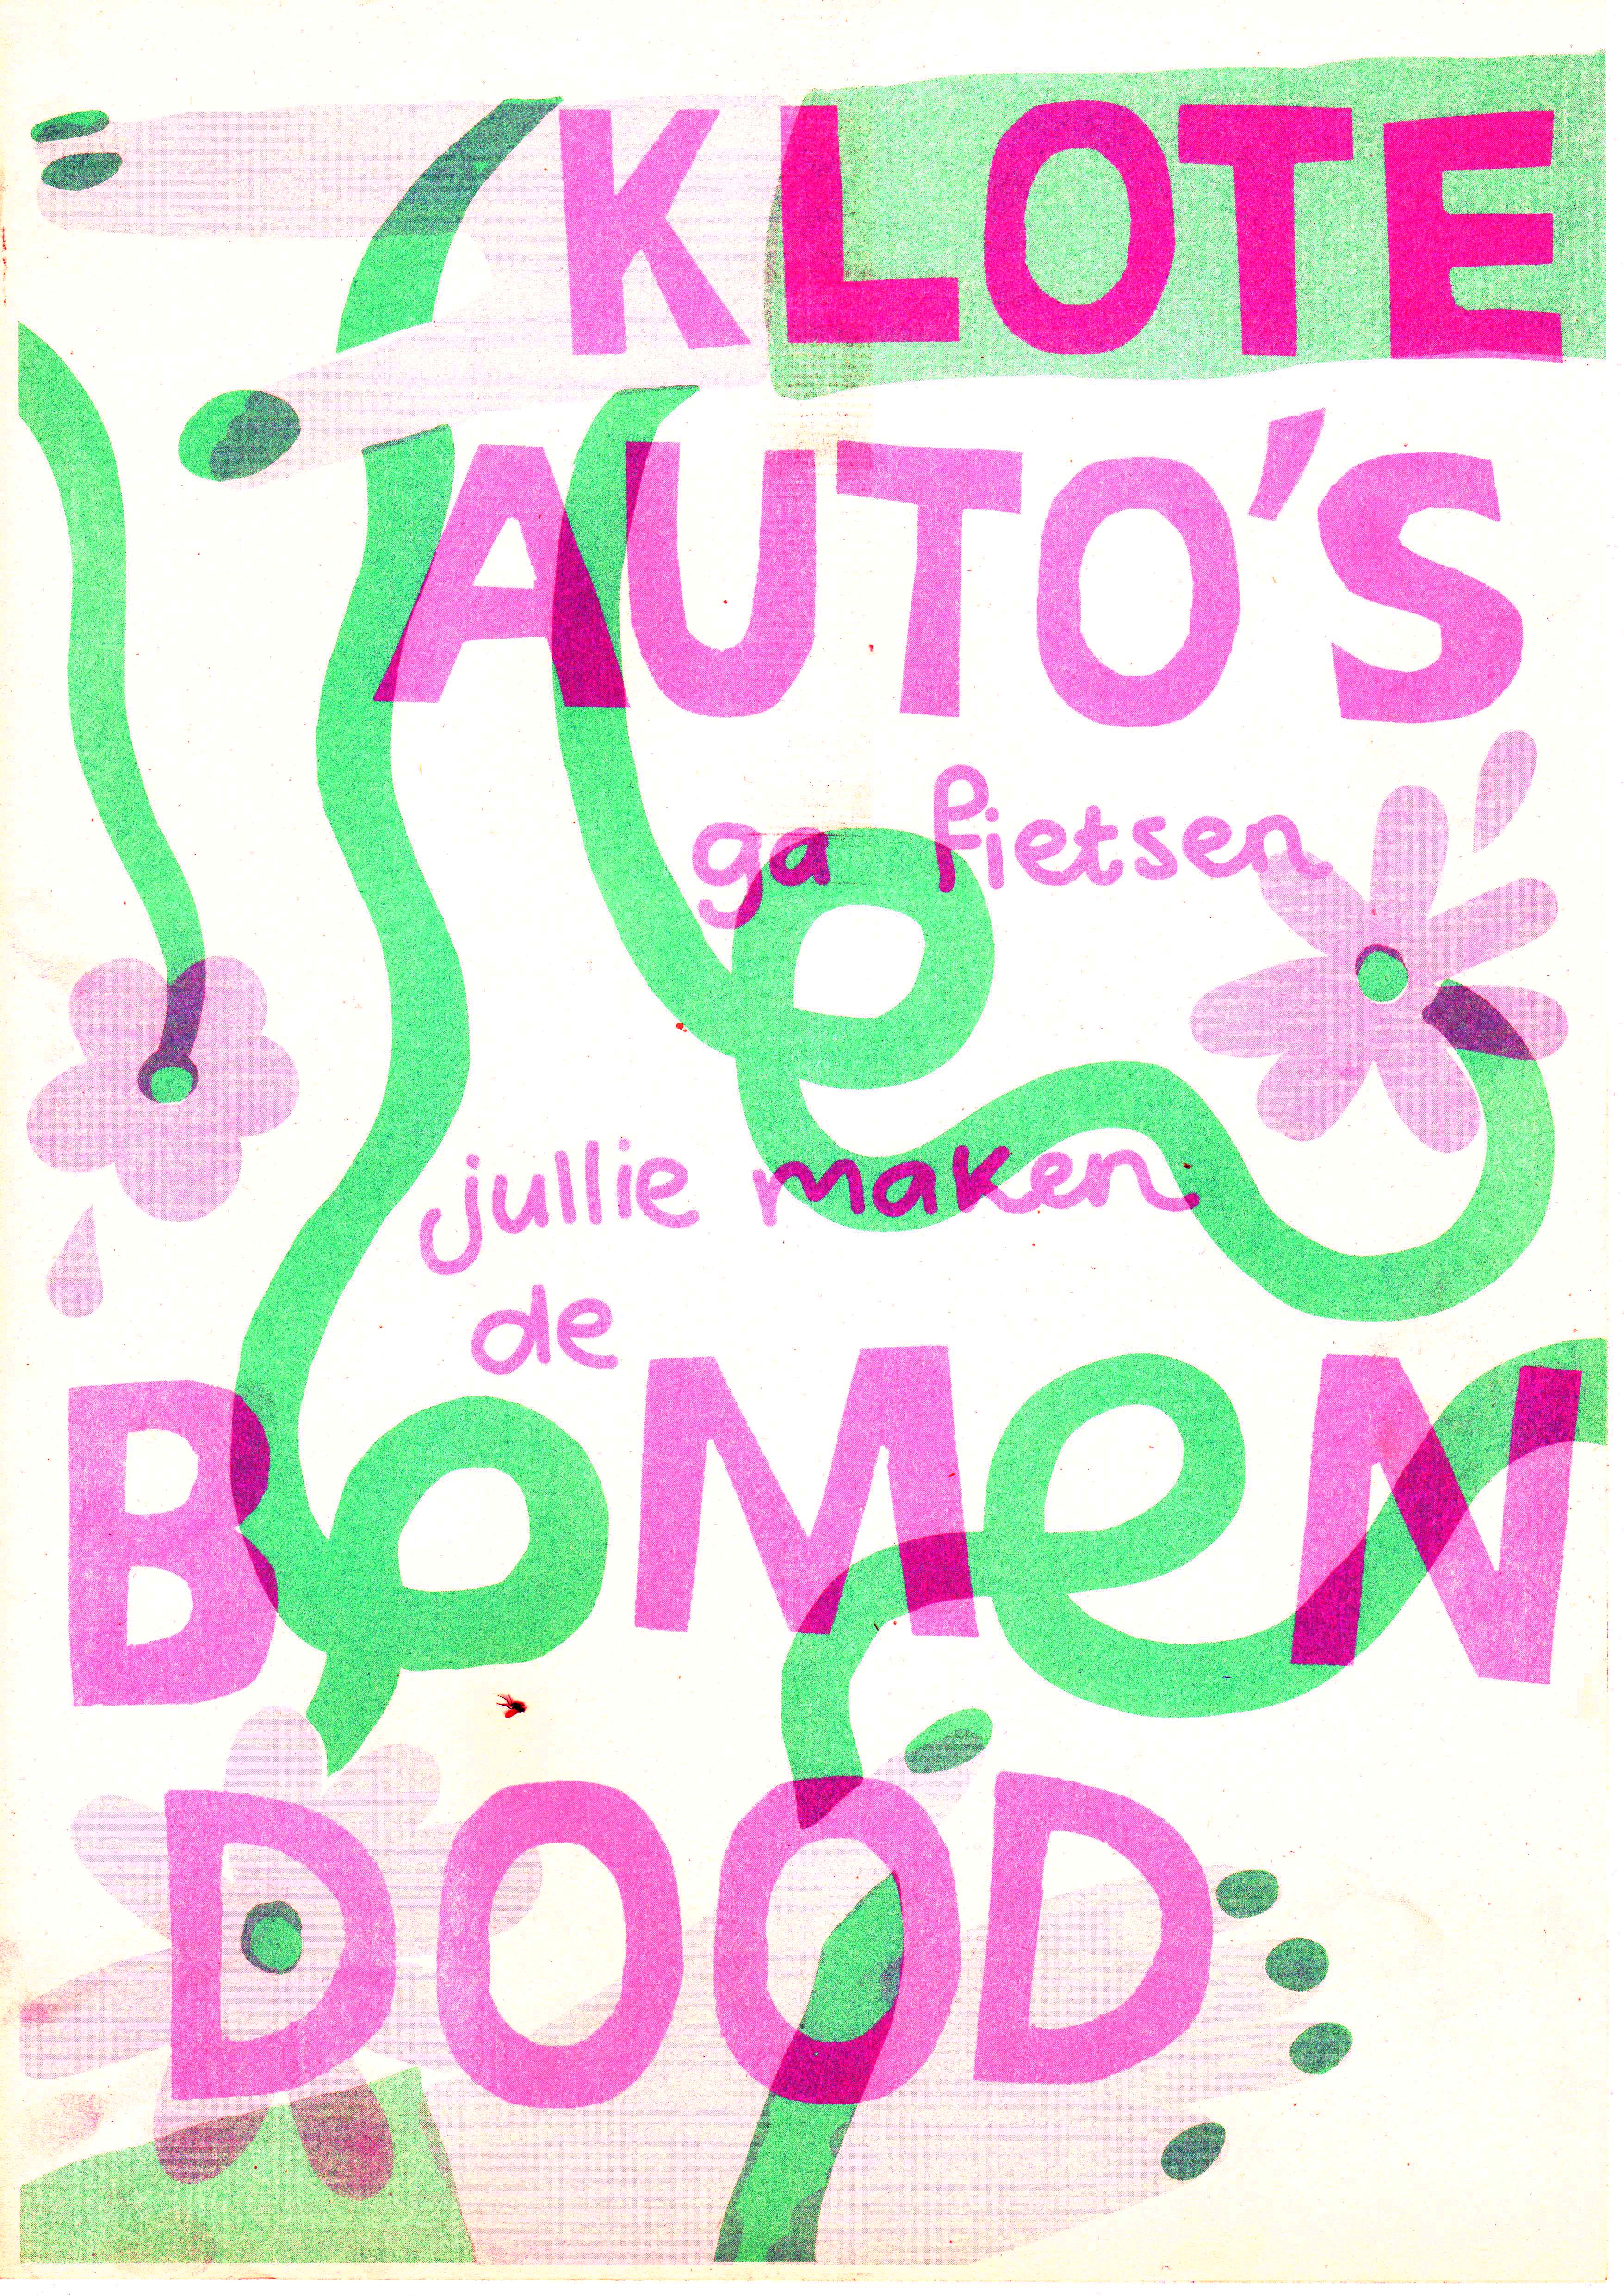 KLOTE
AUTO'S
ga fietsen
jullie maken
de
BoMeN
DOOD